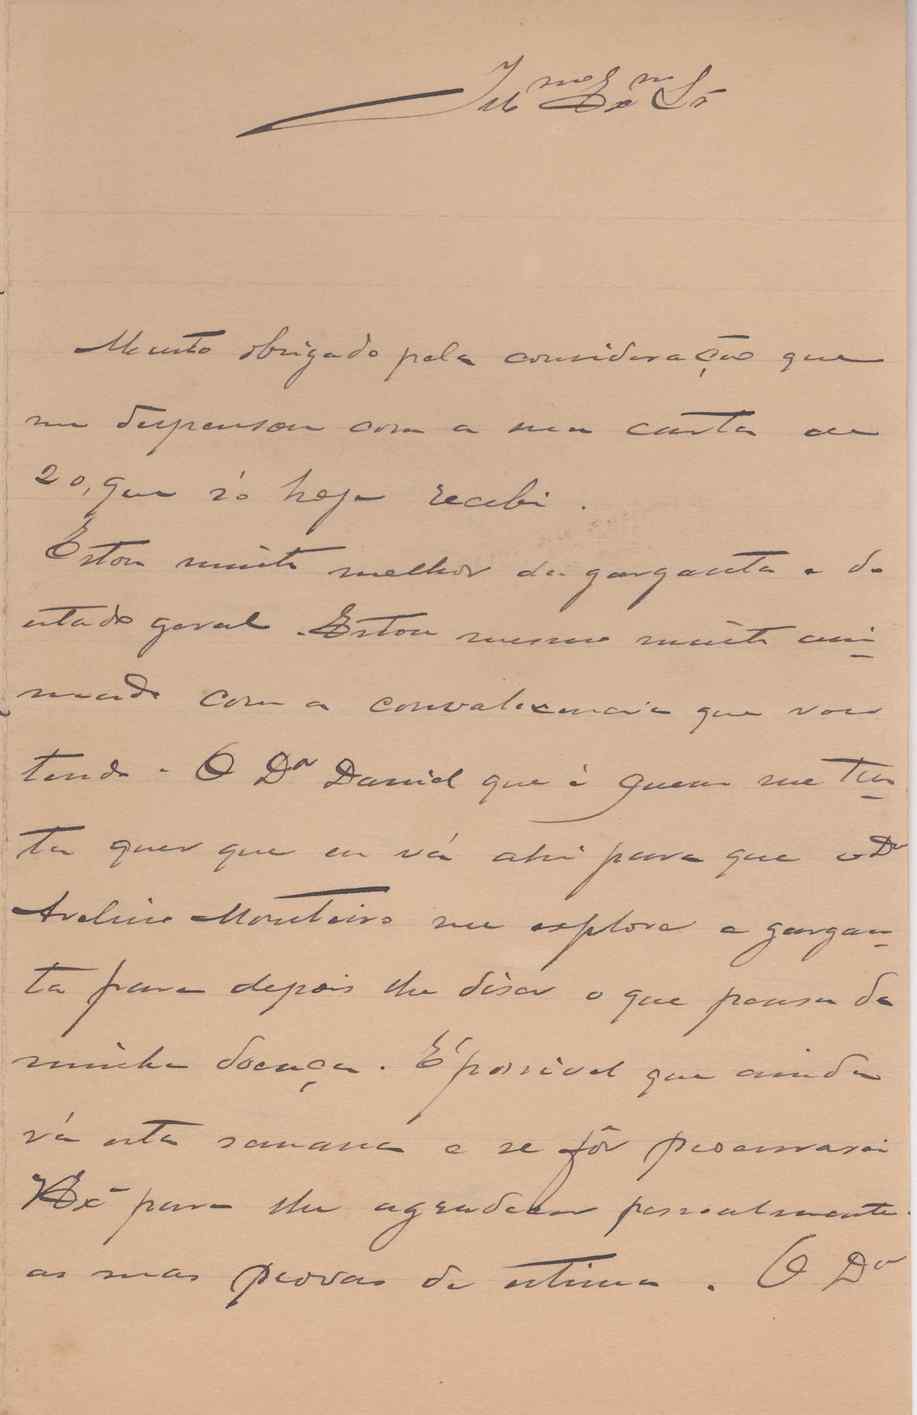 Ill.mo Ex.mo Sr
Muito obrigado pela consideração que
me despensou com a sua carta de
20, que só hoje recebi.
Estou muito melhor da garganta e do
estado geral. Estou mesmo muito ani-
mado com a convalescencia que vou
tendo. O Dr Daniel que é quem me tra-
ta quer que eu vá ahi para que o Dr
Avelino Monteiro me explore a gargan-
ta para depois lhe diser o que pensa da
minha doença. É possivel que ainda
vá esta semana e se fôr procurarei
V Exª para lhe agradecer pessoalmente
as suas provas de estima. O Dr